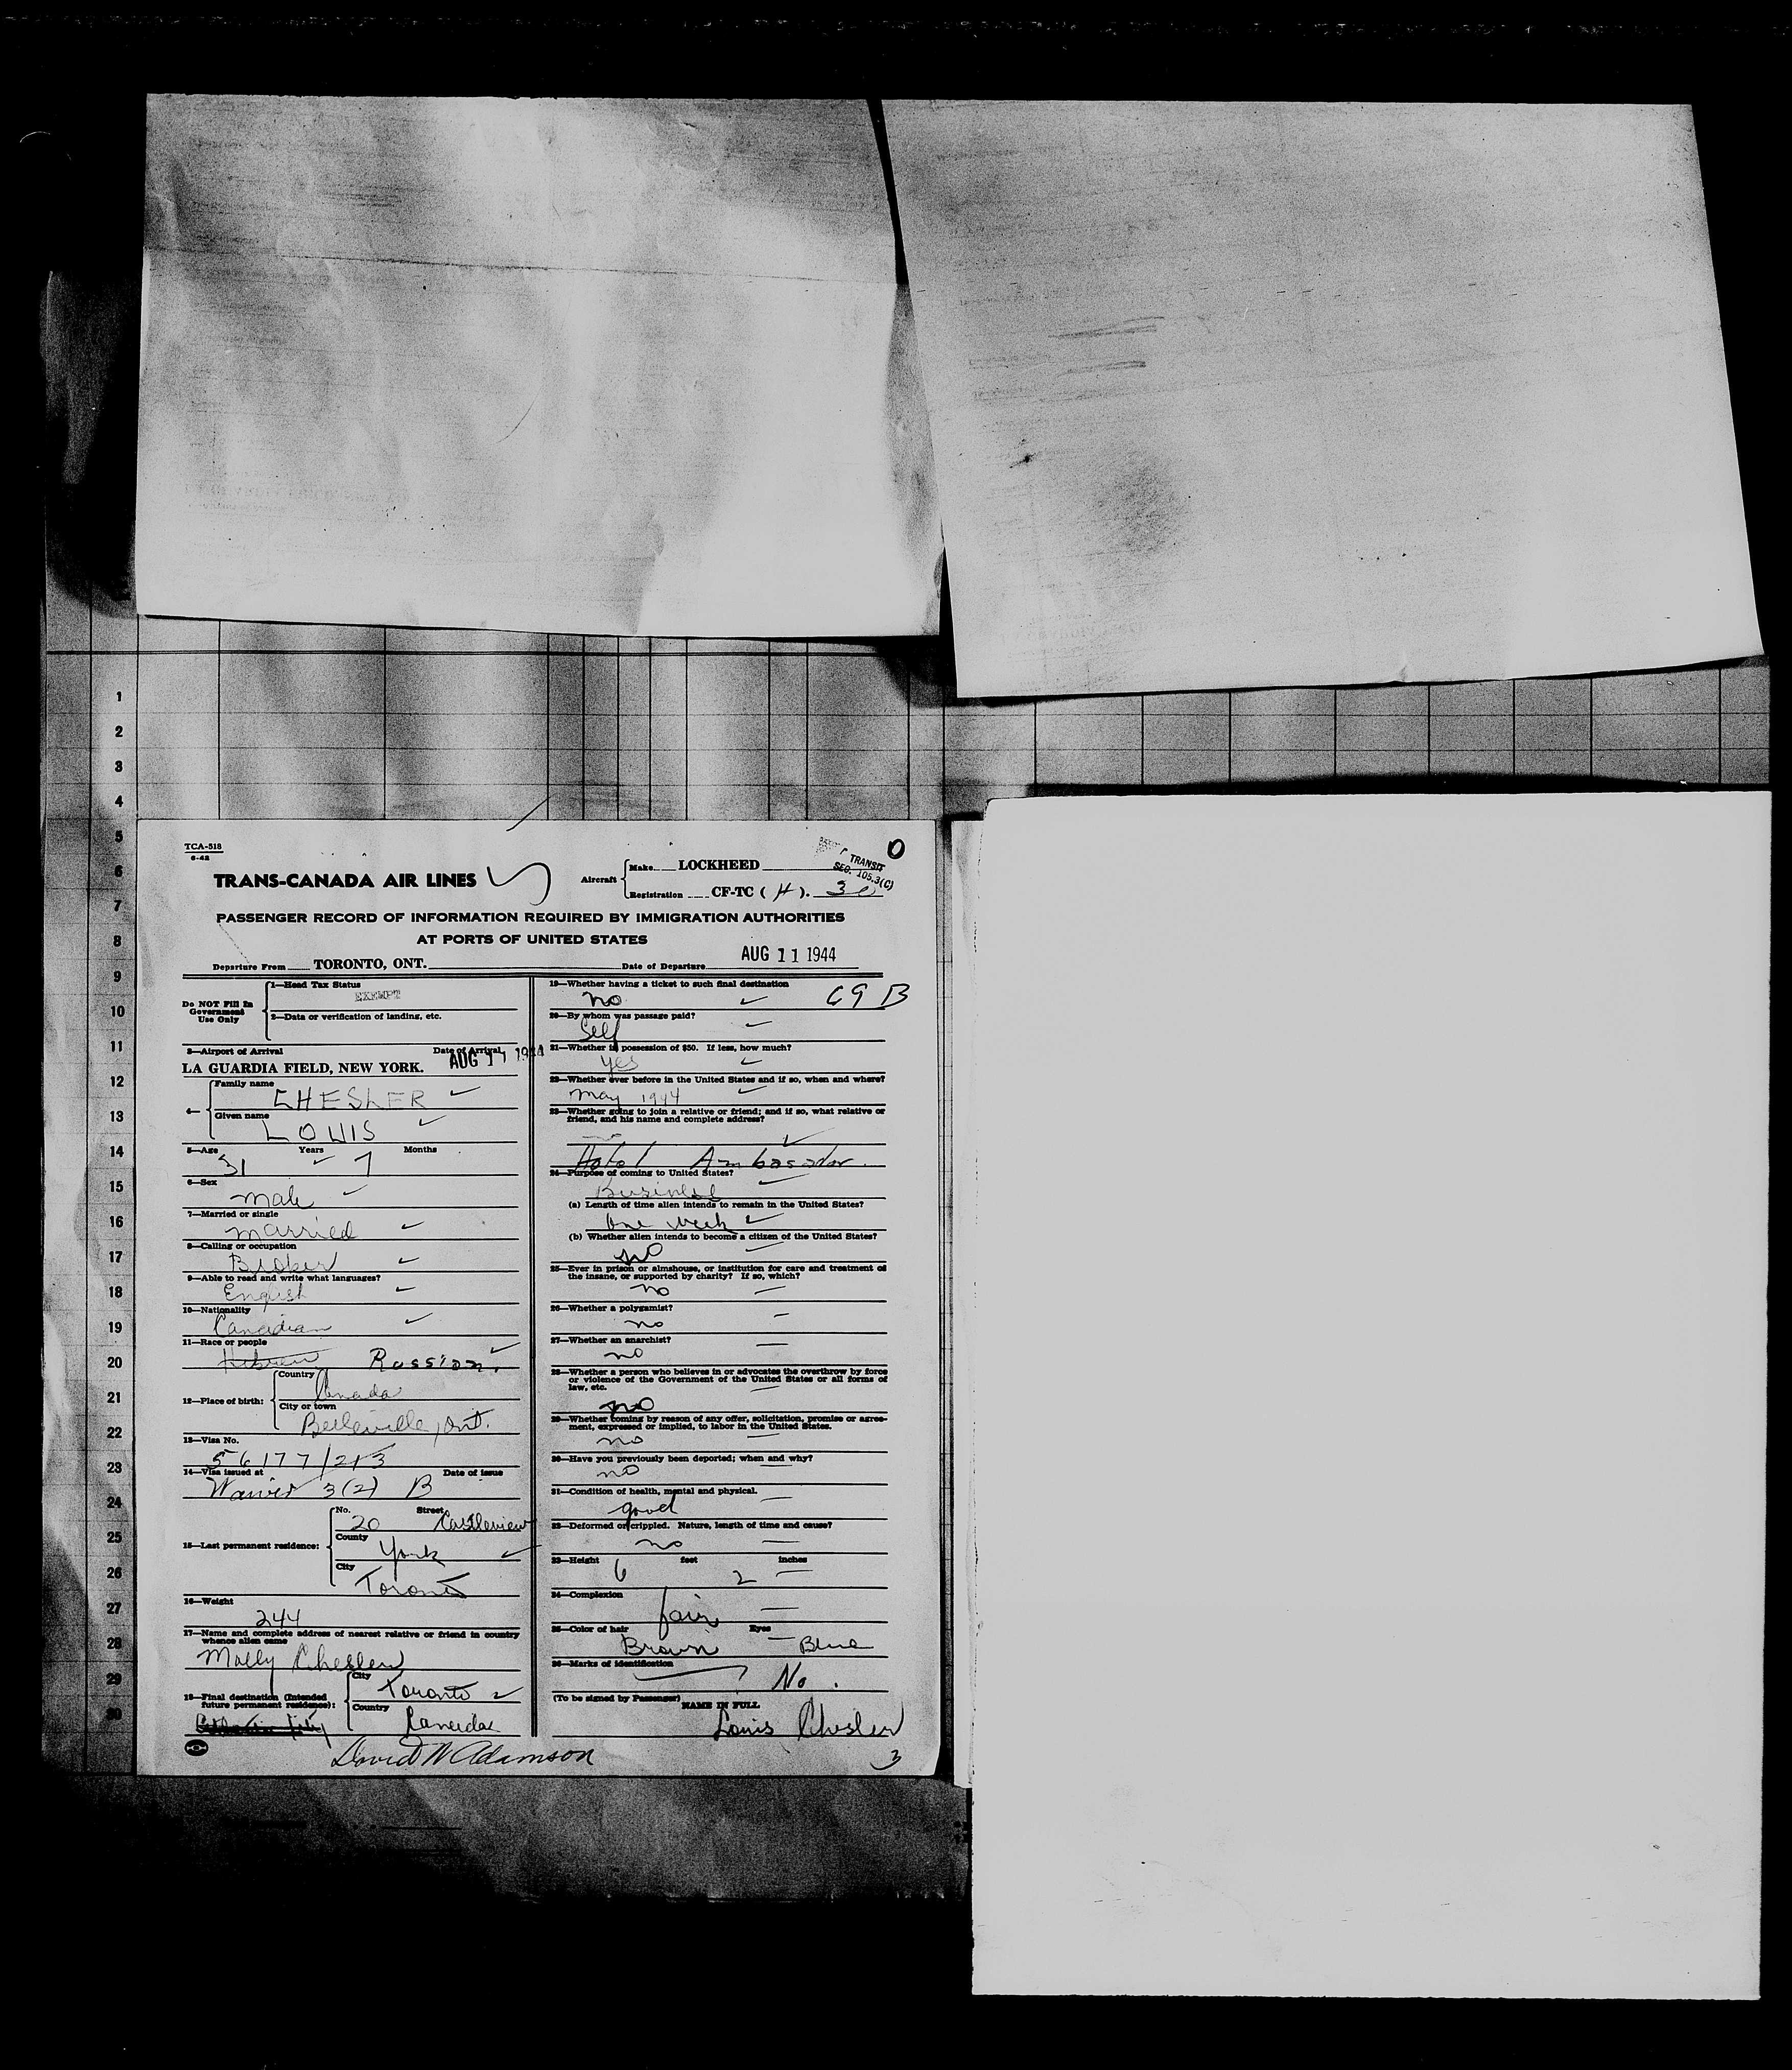 1
2
3
4
5
6
7
8
9
10
11
12
13
14
15
16
17
18
19
20
21
22
23
24
25
26
27
28
29
30
TCA-518
6-42
TRANS-CANADA AIR LINES
Aircraft
Make LOCKHEED
Registration CF-TC (H). 30
TRANSIT
SEC. 105.3(C)
0
PASSENGER RECORD OF INFORMATION REQUIRED BY IMMIGRATION AUTHORITIES
AT PORTS OF UNITED STATES
Departure From TORONTO, ONT. Date of Departure AUG 11 1944
Do NOT Fill In
Government
Use Only
1—Head Tax Status
EXEMPT
2—Data or verification of landing, etc.
3—Airport of Arrival Date of Arrival
LA GUARDIA FIELD, NEW YORK. AUG 11 1944
4— Family name
CHESLER
Given name
LOUIS
5—Age Years Months
31 7
6—Sex
Male
7—Married or single
Married
8—Calling or occupation
Broker
9—Able to read and write what languages?
English
10—Nationality
Canadian
11—Race or people
Hebrew Russian.
12—Place of birth:
Country
Canada
City or town
Belleville, Ont.
13—Visa No.
56177/213
14—Visa issued at Date of issue
Waiver 3(2) B
15—Last permanent residence:
No. Street
20 Castleview
County
York
City
Toronto
16—Weight
244
17—Name and complete address of nearest relative or friend in country
whence alien came
Molly Chesler
18—Final destination (Intended
future permanent residence):
City
Toronto
Country
Canada
19—Whether having a ticket to such final destination
no C9B
20—By whom was passage paid?
Self
21—Whether in possession of $50. If less, how much?
yes
22—Whether ever before in the United States and if so, when and where?
May 1944
23—Whether going to join a relative or friend; and if so, what relative or
friend, and his name and complete address?
Hotel Ambasador.
24—Purpose of coming to United States?
Business
(a) Length of time alien intends to remain in the United States?
One week
(b) Whether alien intends to become a citizen of the United States?
no
25—Ever in prison or almshouse, or institution for care and treatment of
the insane, or supported by charity? If so, which?
no
26—Whether a polygamist?
no
27—Whether an anarchist?
no
28—Whether a person who believes in or advocates the overthrow by force
or violence of the Government of the United States or all forms of
law, etc.
no
29—Whether coming by reason of any offer, solicitation, promise or agree-
ment, expressed or implied, to labor in the United States.
no
30—Have you previously been deported; when and why?
no
31—Condition of health, mental and physical.
good
32—Deformed or crippled. Nature, length of time and cause?
no
33—Height feet inches
6 2
34—Complexion
fair
35—Color of hair Eyes
Brown Blue
36—Marks of identification
No.
(To be signed by Passenger) NAME IN FULL
Louis Chesler
David W Adamson
3